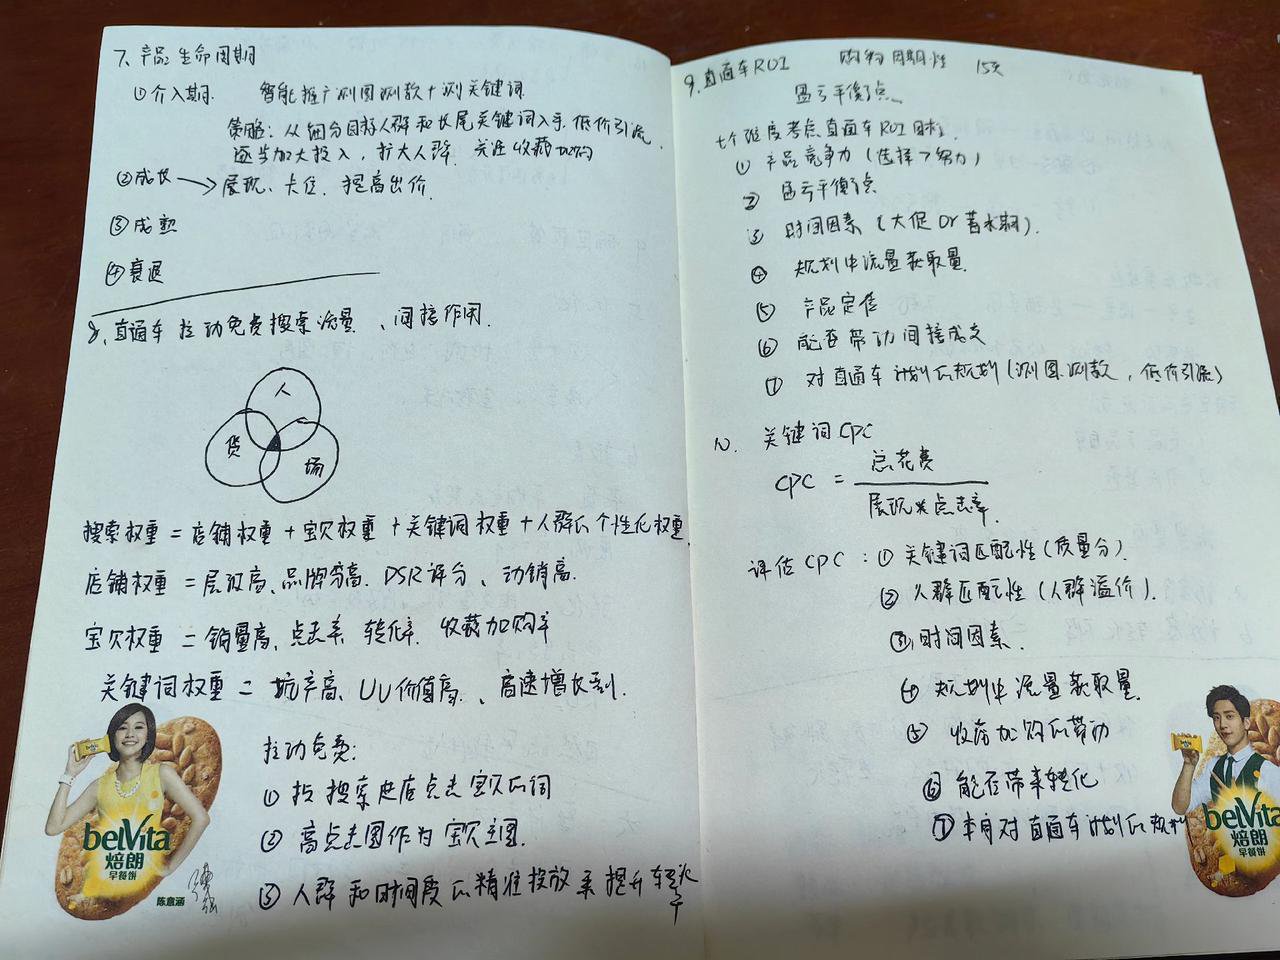 7、产品生命周期
①介入期. 智能推广测图测款+测关键词
策略: 从细分目标人群和长尾关键词入手, 低价引流,
逐步加大投入, 扩大人群. 关注收藏加购
②成长 → 展现、卡位. 提高出价.
③成熟
④衰退
8、直通车拉动免费搜索流量、间接作用.
人
货
场
搜索权重 = 店铺权重 + 宝贝权重 + 关键词权重 + 人群的个性化权重
店铺权重 = 层级高、品牌分高. DSR评分、动销高.
宝贝权重 = 销量高、点击率、转化率. 收藏加购率
关键词权重 = 坑产高、UV价值高、高速增长到.
拉动免费:
① 找搜索进店点击宝贝的词
② 高点击图作为宝贝主图.
③ 人群和时间度的精准投放来提升转化率
belVita
焙朗
早餐饼
陈意涵
9、直通车ROI 购物周期性 15天
盈亏平衡点
七个维度考虑直通车ROI目标.
① 产品竞争力 (选择>努力)
② 盈亏平衡点
③ 时间因素 (大促or蓄水期).
④ 规划中流量获取量.
⑤ 产品定价
⑥ 能否带动间接成交
⑦ 对直通车计划的规划 (测图测款, 低价引流)
10. 关键词CPC
CPC = 总花费
展现×点击率.
评估CPC: ① 关键词匹配性 (质量分).
② 人群匹配性 (人群溢价).
③ 时间因素.
④ 规划中流量获取量.
⑤ 收藏加购的带动
⑥ 能否带来转化
⑦ 本身对直通车计划的规划
belVita
焙朗
早餐饼